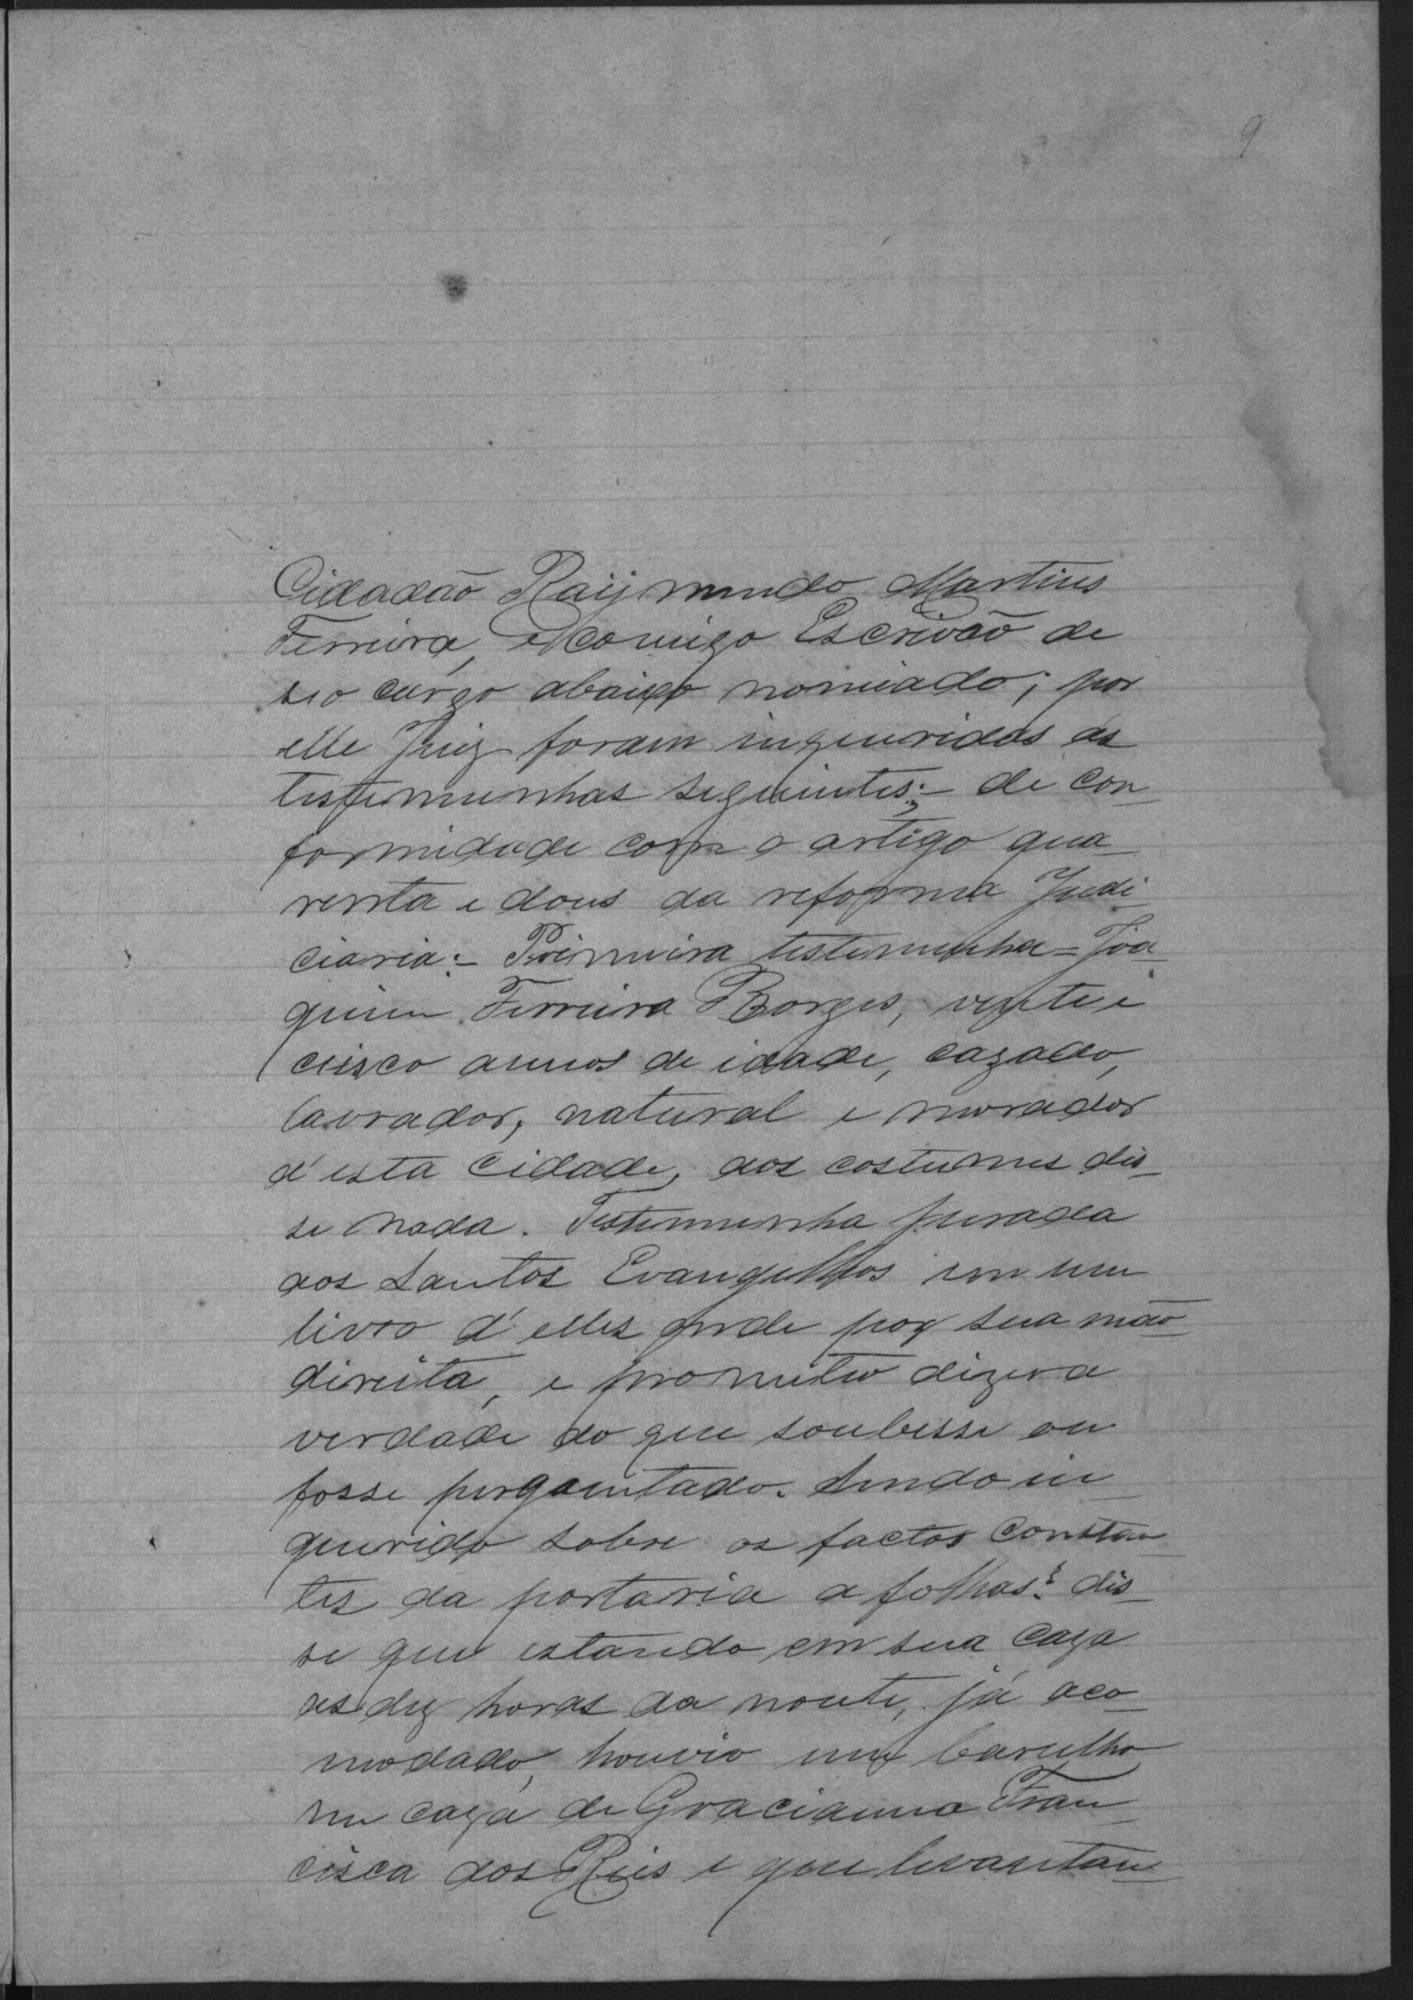 9
Cidadão Raijmundo Martins
Ferreira, e comigo Escrivão de
seo cargo abaixo nomiado; por
elle Juiz foram inqueridas as
testemunhas seguintes; – de con_
formidade com o artigo qua_
renta e dous da reforma Judi_
ciaria: – Primeira testemunha = Joa_
quim Ferreira Borges, vinte e
cinco annos de idade, cazado,
lavrador, natural e morador
d'esta Cidade, aos costumes dis_
se nada. Testemunha jurada
aos Santos Evangelhos em um
livro d'elles onde poz sua mão
direita, e prometeo dizer a
verdade do que soubesse ou
fosse perguntado. Sendo in_
querido sobre os factos constan_
tes da portaria a folhas: dis_
se que estando em sua caza
as dez horas da noute, já aco_
modado, houvio um barulho
em caza de Gracianna Fran_
cisca dos Reis e que levantan_